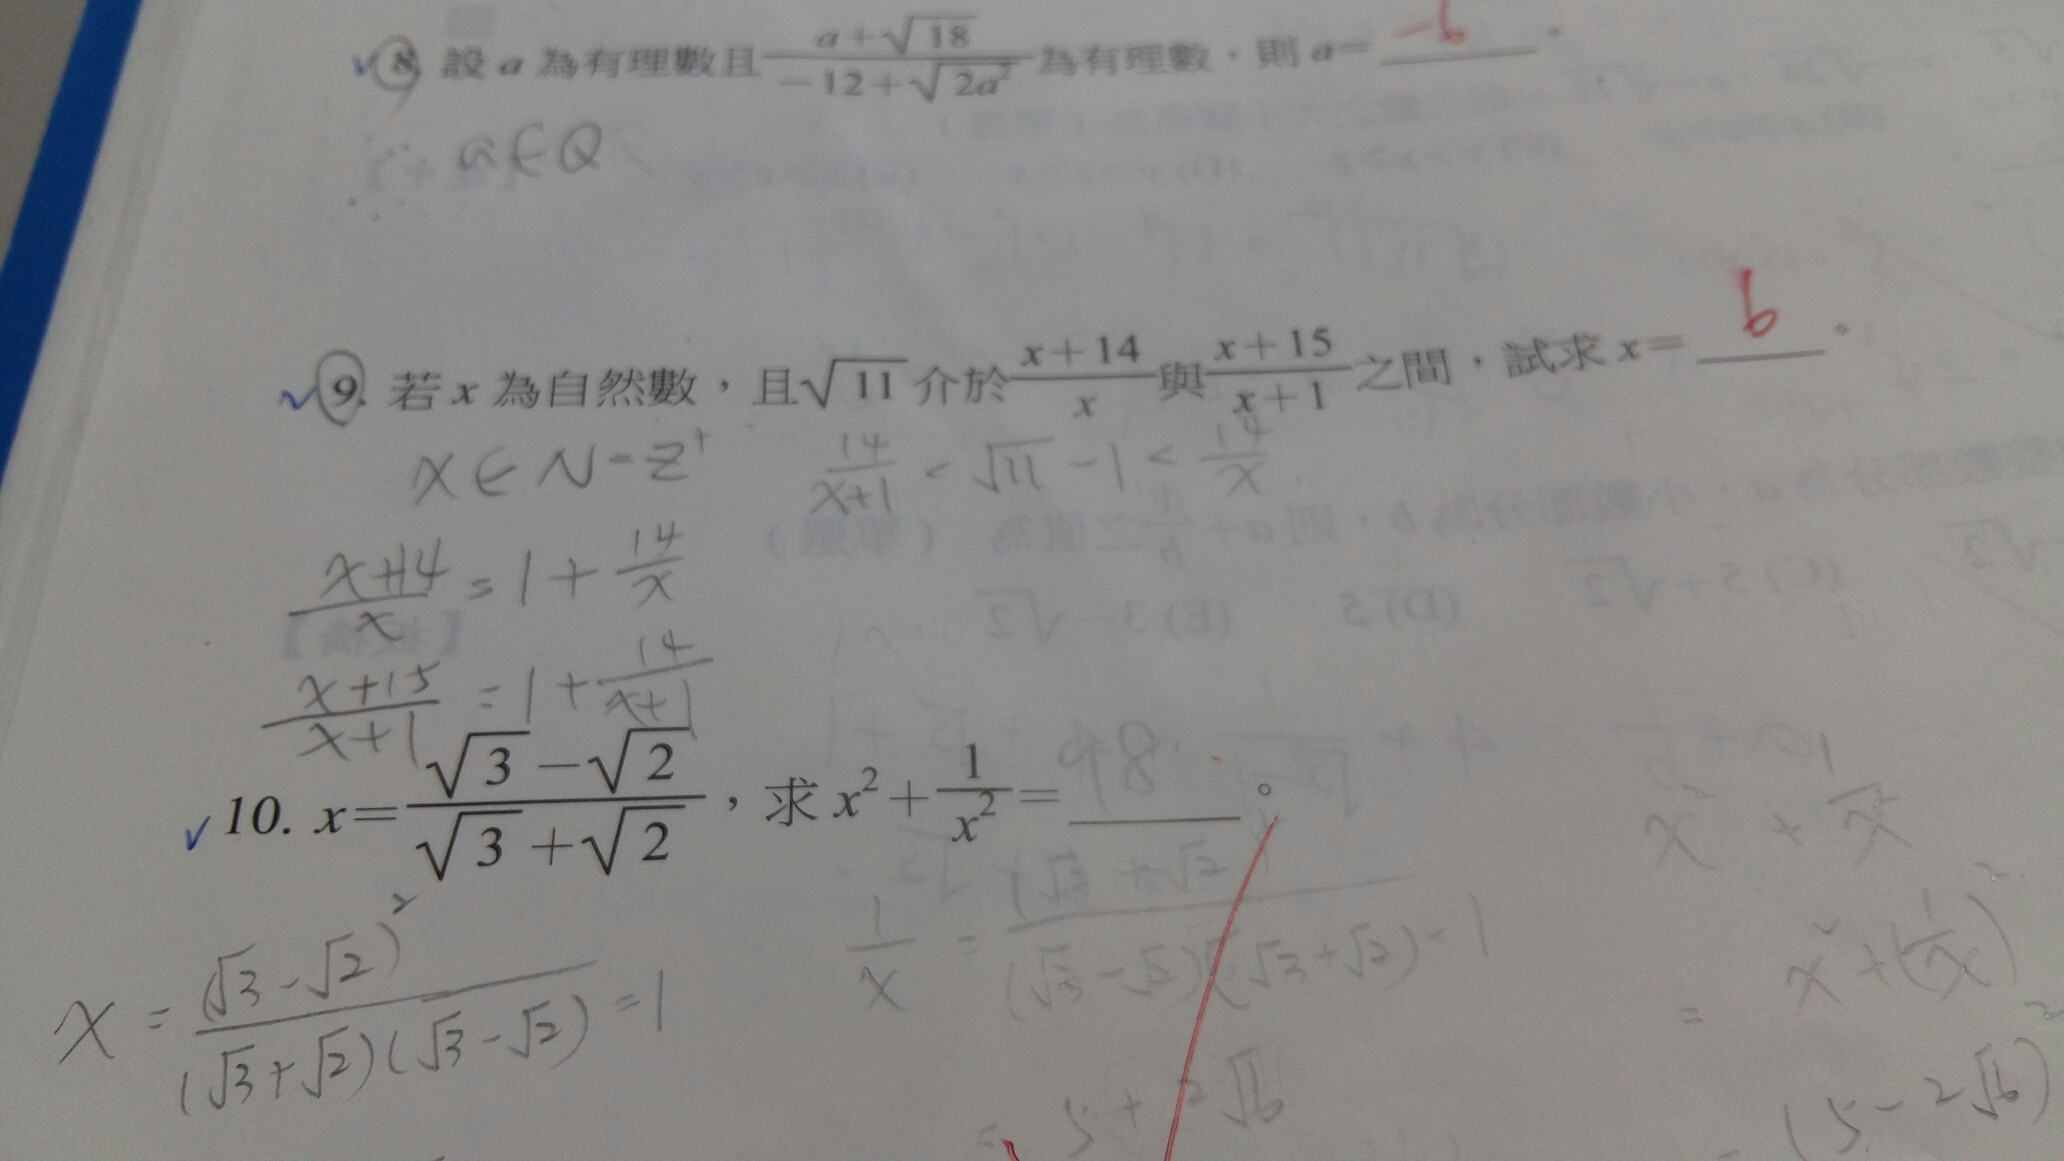 8. 設 a 為有理數且 (a+√18)/(−12+√(2a²)) 為有理數，則 a= -6 。
∵ a∈Q
9. 若 x 為自然數，且 √11 介於 (x+14)/x 與 (x+15)/(x+1) 之間，試求 x= 6 。
x∈N=Z⁺ 14/(x+1) < √11 −1 < 14/x
(x+14)/x = 1+14/x
(x+15)/(x+1) = 1+14/(x+1)
10. x= (√3−√2)/(√3+√2)，求 x²+1/x²= 98 。
x + 1/x
x = (√3−√2)²/((√3+√2)(√3−√2)) = 1
1/x = (√3+√2)²/((√3−√2)(√3+√2)) = 1
= x²+(1/x)²
= 5+2√6
= (5−2√6)²